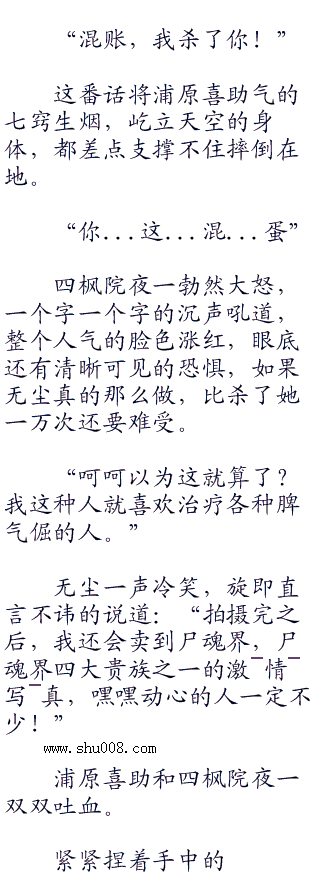 “混账，我杀了你！”
这番话将浦原喜助气的
七窍生烟，屹立天空的身
体，都差点支撑不住摔倒在
地。
“你...这...混...蛋”
四枫院夜一勃然大怒，
一个字一个字的沉声吼道，
整个人气的脸色涨红，眼底
还有清晰可见的恐惧，如果
无尘真的那么做，比杀了她
一万次还要难受。
“呵呵以为这就算了？
我这种人就喜欢治疗各种脾
气倔的人。”
无尘一声冷笑，旋即直
言不讳的说道：“拍摄完之
后，我还会卖到尸魂界，尸
魂界四大贵族之一的激¯情¯
写¯真，嘿嘿动心的人一定不
少！”
www.shu008.com
浦原喜助和四枫院夜一
双双吐血。
紧紧捏着手中的